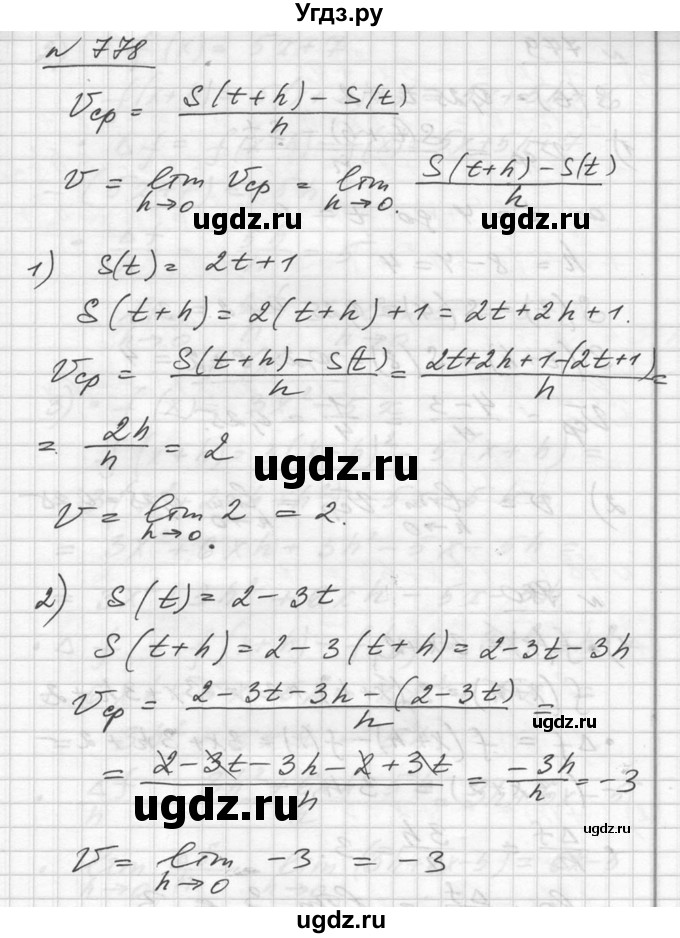 Угдз.ру
№ 778
Vср = (S(t+h) - S(t))/h
V = lim h→0 Vср = lim h→0. (S(t+h) - S(t))/h
ugdz.ru ugdz.ru
1) S(t) = 2t+1
S(t+h) = 2(t+h)+1 = 2t+2h+1.
Vср = (S(t+h) - S(t))/h = (2t+2h+1-(2t+1))/h =
= 2h/h = 2
ugdz.ru
V = lim h→0 2 = 2.
2) S(t) = 2-3t
S(t+h) = 2-3(t+h) = 2-3t-3h
Vср = (2-3t-3h-(2-3t))/h =
ugdz.ru
= (2-3t-3h-2+3t)/h = -3h/h = -3
ugdz.ru
ugdz.ru
V = lim h→0 -3 = -3
ugdz.ru